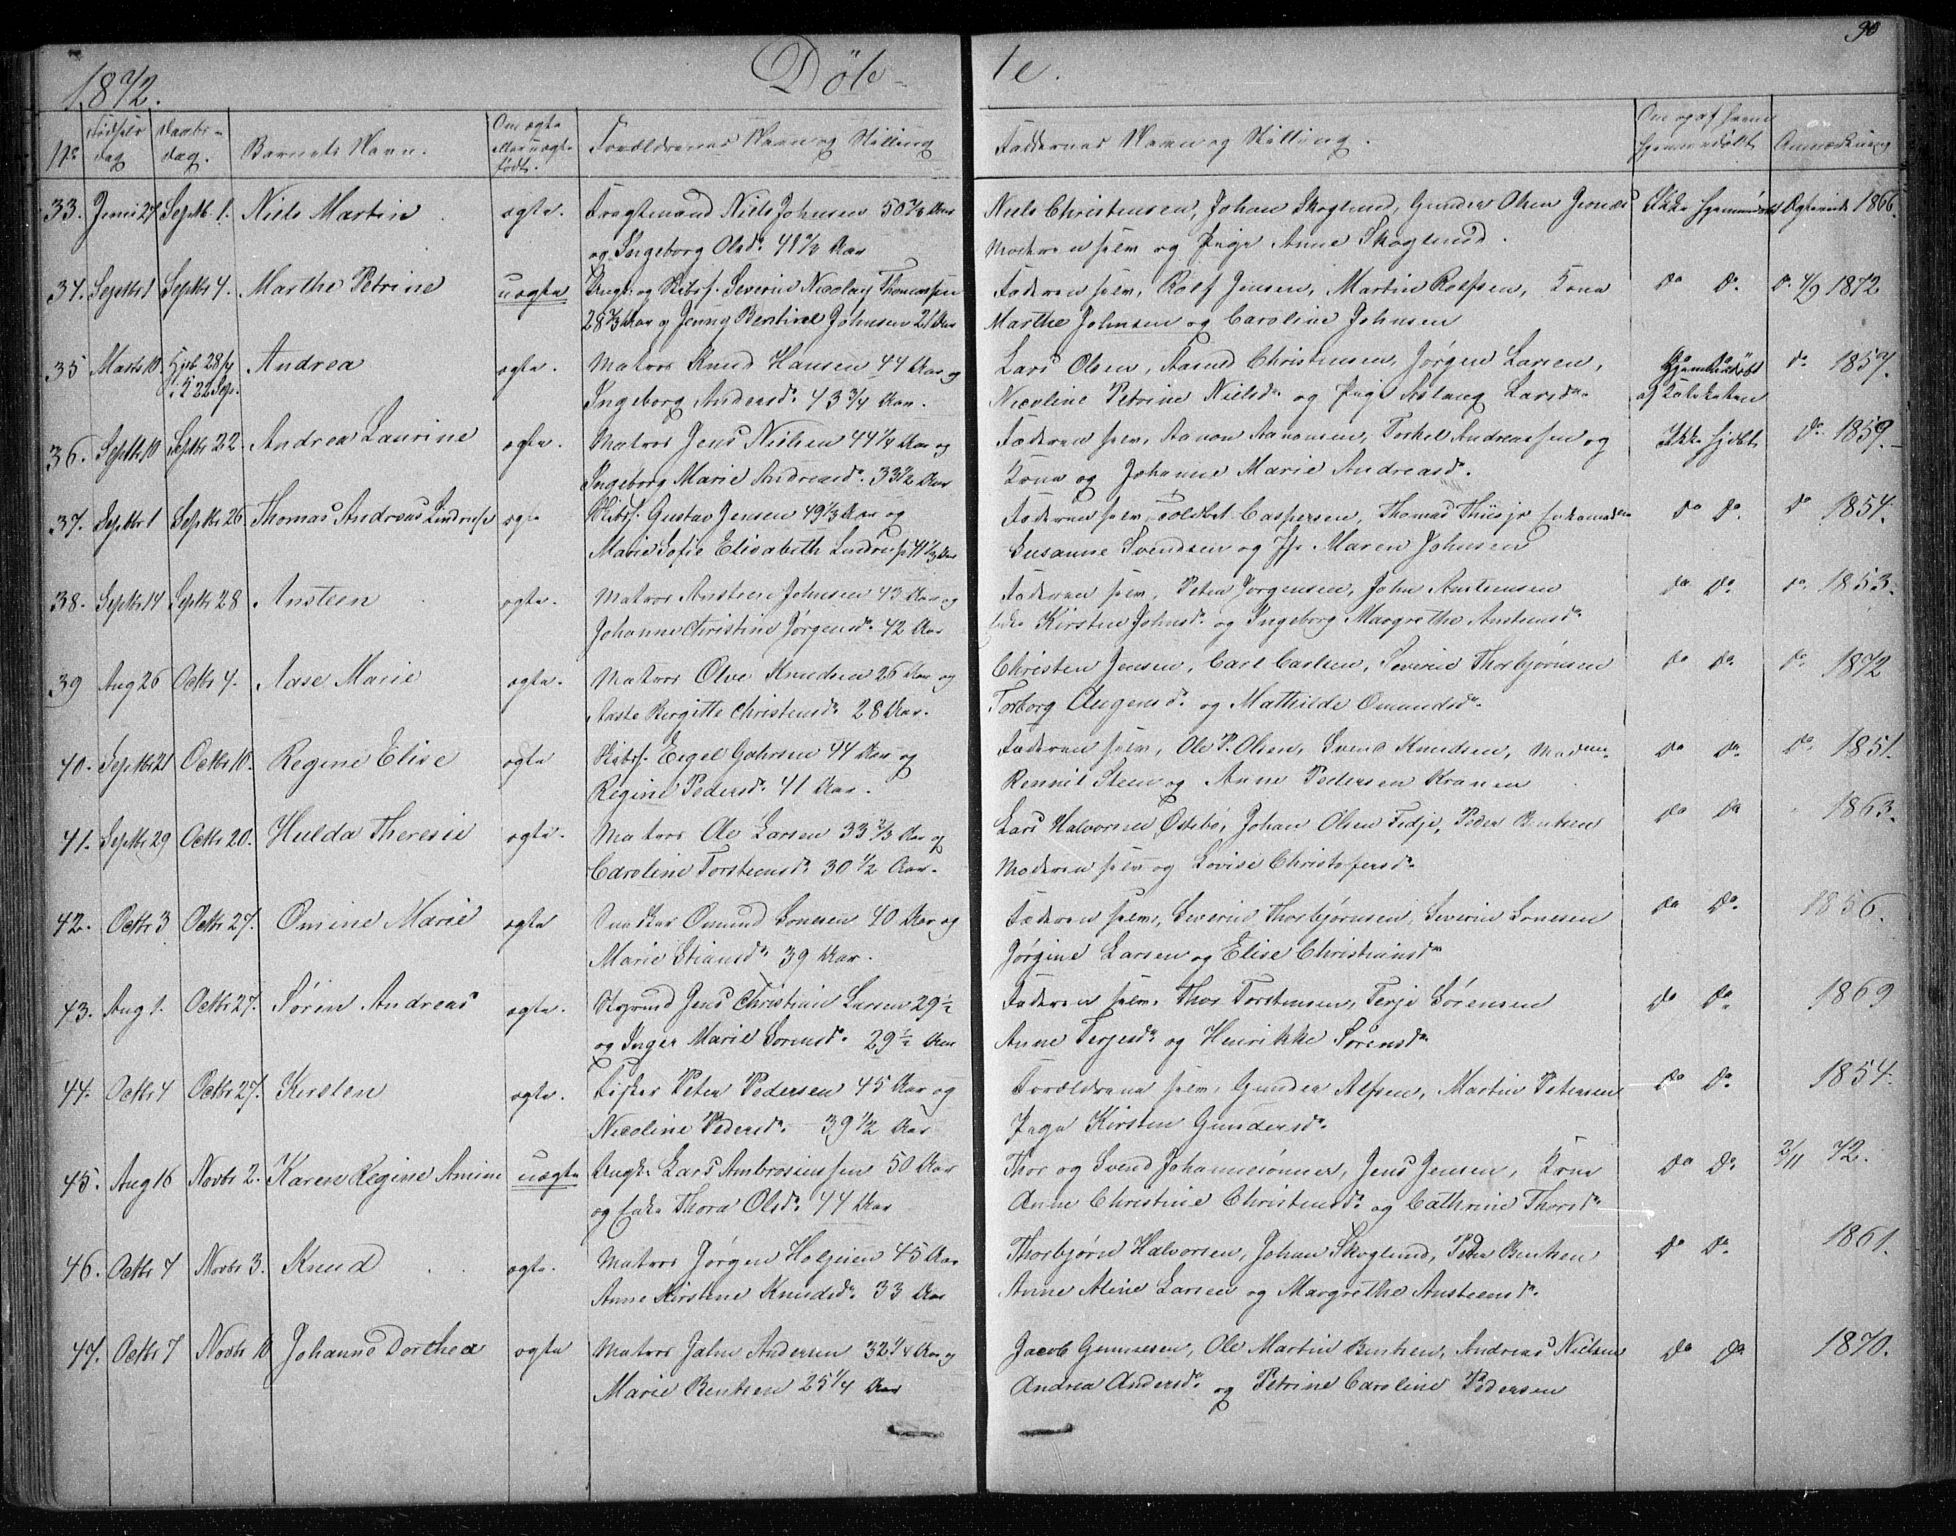 90
1872.
Döb-
te.
No
Fødsels dag
Daabs-dag.
Barnets Navn.
Om ægte eller uægte født.
Forældrenes Navn og Stilling
Faddernes Navn og Stilling.
Om og af hvem hjemmedøbt
Anmærkning
33. Juni 27 Septb. 1. Niels Martin ægte. Fragtmand Niels Johnsen 50 2/3 Aar Niels Christensen, Johan Skoglund, Gunder Olsen Ikke hjemmedøbt Ægteviede 1866.
og Ingeborg Olsdr. 41 2/3 Aar Moderen selv og Pige Anne Skoglund.
34. Septbr 1 Septbr 4. Marthe Petrine uægte Ungk. og Skibsf. Severin Nicolay Thomassen Faderen selv, Rolf Jensen, Martin Rolfsen, Kone do do. do. 4/9 1872
28 2/3 Aar og Jenny Bertine Johnsen 21 Aar Marthe Johnsen og Caroline Johnsen
35 Marts 10. Hjb 28/4 i K 22 Sep. Andrea ægte. Matros Knud Hansen 44 Aar og Lars Olsen, Aamund Christensen, Jørgen Larsen, Hjemmedøbt do 1857.
Ingeborg Andersdr. 43 3/4 Aar. Nicoline Petrine Nielsdr og Pige Aslaug Larsdr. af
36. Septbr 10 Septbr 22. Andrea Laurine ægte. Matros Jens Nielsen 44 1/4 Aar og Faderen selv, Aanon Aanonsen, Torkel Andreassen og Ikke hjdbt do. 1859.
Ingeborg Marie Andreasdr. 33 1/2 Aar Kone og Johanne Marie Andreasdr.
37. Septbr 1 Septbr 26 Thomas Andreas ægte Skibsf. Gustav Jensen 49 1/3 Aar og Faderen selv, Toldbet. Caspersen, Thomas do do. do 1854.
Marie Sofie Elisabeth 41 1/3 Aar Susanne Svendsen og Jfr. Maren Johnsen
38. Septbr 14 Septbr 28 Ansteen ægte. Matros Ansteen Johnsen 43 Aar og Faderen selv, Peter Jørgensen, John Ansteensen do do. do. 1853.
Johanne Christine Jørgensdr. 42 Aar Enke Kirsten Johnsdr. og Ingeborg Margrethe Ansteensdr.
39 Aug 26 Octbr 4. Aase Marie ægte. Matros Olve Knudsen 26 Aar og Christen Jensen, Carl Carlsen, Severin Thorbjørnsen do do. do. 1872
Aaste Birgitte Christensdr. 28 Aar. Torborg Augensdr. og Mathilde Omundsdr.
40. Septbr 21 Octbr 10. Regine Elise ægte Skibsf. Eigel 44 Aar og Faderen selv, Ole P. Olsen, Svend Knudsen, Madme. do do. do. 1851.
Regine Pedersd. 41 Aar. Steen og Anne Pedersen
41. Septbr 29 Octbr 20. Hulda Theresie ægte. Matros Ole Larsen 33 2/3 Aar og Lars Halvorsen Østebø, Johan Olsen Fedje, Peder Bentsen do do 1863.
Caroline Torsteensdr. 30 1/2 Aar. Moderen selv og Lovise Christofersdr.
42. Octbr 3 Octbr 27. Omine Marie ægte Omund Sonesen 40 Aar og Faderen selv, Severin Thorbjørnsen, Severin Sonesen do do. 1856.
Marie Stiansdr. 39 Aar. Jørgine Larsen og Elise Christiansdr
43. Aug 1. Octbr 27. Søren Andreas ægte. Jens Christian Larsen 29 1/2 Faderen selv. Thor Torstensen, Terje Sørensen do do. 1869
og Inger Marie Sørensdr. 29 1/2 Aar Anne Terjesdr og Henrikke Sørensdr.
44. Octbr 4 Octbr 27. Kirsten ægte. Fisker Peter Pedersen 45 Aar og Forældrene selv, Gunder Alfsen, Martin Petersen do do. 1854.
Nicoline Pedersdr. 39 1/2 Aar Pige Kirsten Gundersdr.
45. Aug 16 Novbr 2. Karen Regine Amine uægte Ungk. Lars Ambrosiussen 50 Aar Thor og Svend Johannesønner, Jens Jensen, Kone do do. 2/11 72.
og Enke Thora Olsdr. 44 Aar Anne Christine Christensdr. og Cathrine Thorsdr
46. Octbr 4 Novbr 3. Knud ægte. Matros Jørgen Holjesen 45 Aar Thorbjørn Halvorsen, Johan Skoglund, Peder Bentsen do do. 1861.
Anne Kirstine Knudsdr. 33 Aar Anne Aline Larsen og Margrethe Ansteensdr.
47. Octbr 7 Novbr 10 Johanne Dorthea ægte Matros John Andersen 32 1/4 Aar og Jacob Gunnesen, Ole Martin Bentsen, Andreas Nielsen do do. 1870.
Marie Bentsen 25 1/4 Aar Andrea Andersdr. og Petrine Caroline Pedersen